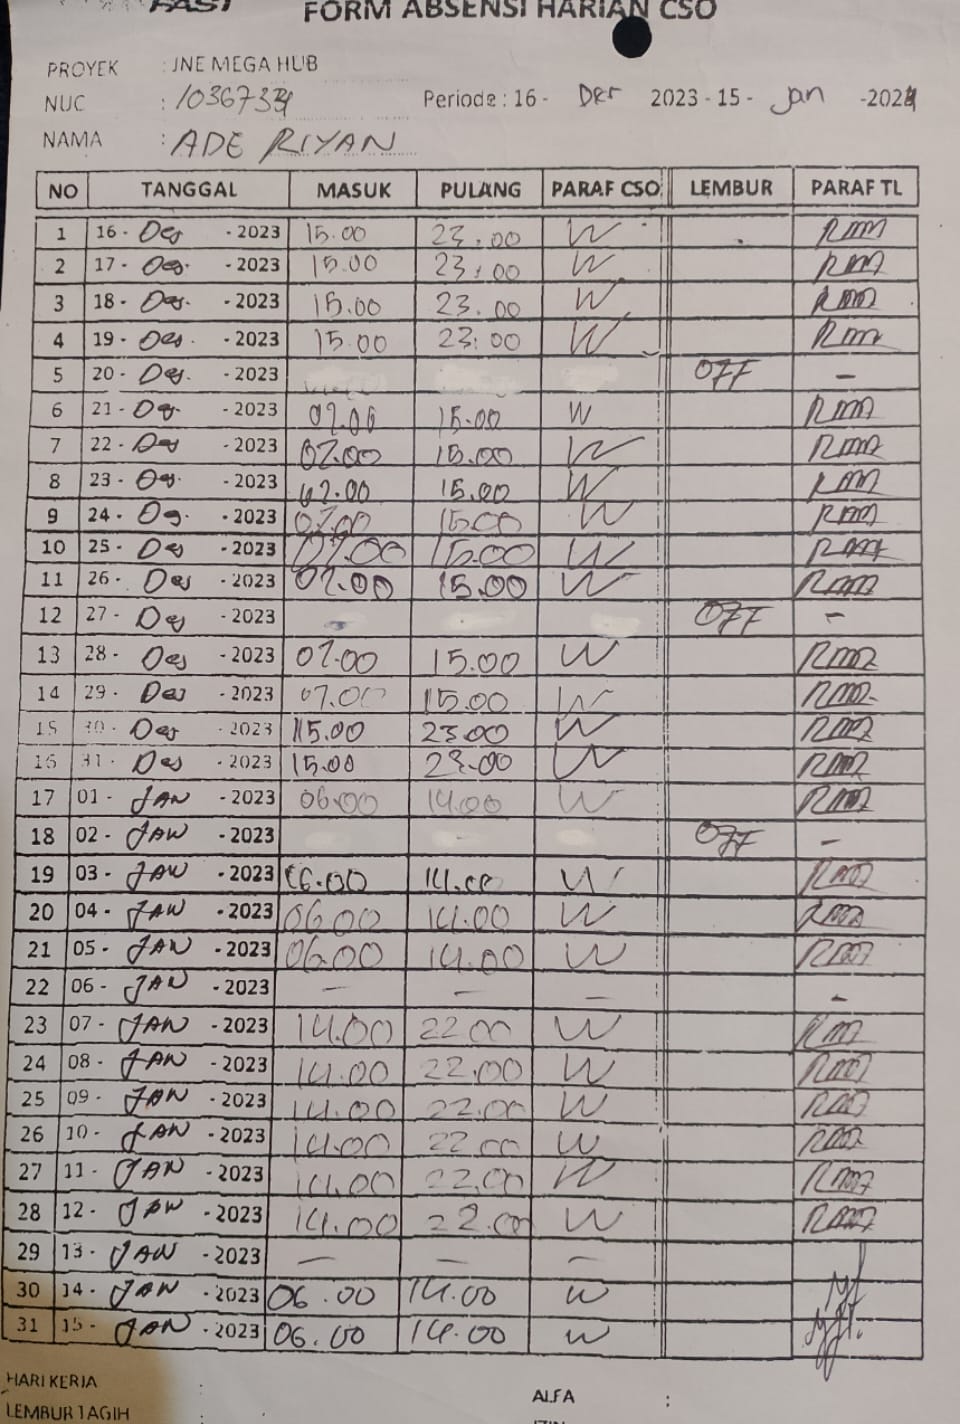 FAST FORM ABSENSI HARIAN CSO
PROYEK : JNE MEGA HUB
NUC :
Periode : 16 - Des 2023 - 15 - Jan - 2024
NAMA : ADE RIYAN
NO TANGGAL MASUK PULANG PARAF CSO LEMBUR PARAF TL
1 16 - Des - 2023 15.00 23.00
2 17 - Des - 2023 15.00 23.00
3 18 - Des - 2023 15.00 23.00
4 19 - Des - 2023 15.00 23.00
5 20 - Des - 2023 OFF -
6 21 - Des - 2023 07.00 15.00
7 22 - Des - 2023 07.00 15.00
8 23 - Des - 2023 07.00 15.00
9 24 - Des - 2023 07.00 15.00
10 25 - Des - 2023 07.00 15.00
11 26 - Des - 2023 07.00 15.00
12 27 - Des - 2023 OFF -
13 28 - Des - 2023 07.00 15.00
14 29 - Des - 2023 07.00 15.00
15 30 - Des - 2023 15.00 23.00
16 31 - Des - 2023 15.00 23.00
17 01 - JAN - 2023 06.00 14.00
18 02 - JAN - 2023 OFF -
19 03 - JAN - 2023 06.00 14.00
20 04 - JAN - 2023 06.00 14.00
21 05 - JAN - 2023 06.00 14.00
22 06 - JAN - 2023 - - - -
23 07 - JAN - 2023 14.00 22.00
24 08 - JAN - 2023 14.00 22.00
25 09 - JAN - 2023 14.00 22.00
26 10 - JAN - 2023 14.00 22.00
27 11 - JAN - 2023 14.00 22.00
28 12 - JAN - 2023 14.00 22.00
29 13 - JAN - 2023 - - -
30 14 - JAN - 2023 06.00 14.00
31 15 - JAN - 2023 06.00 14.00
HARI KERJA : ALFA :
LEMBUR TAGIH